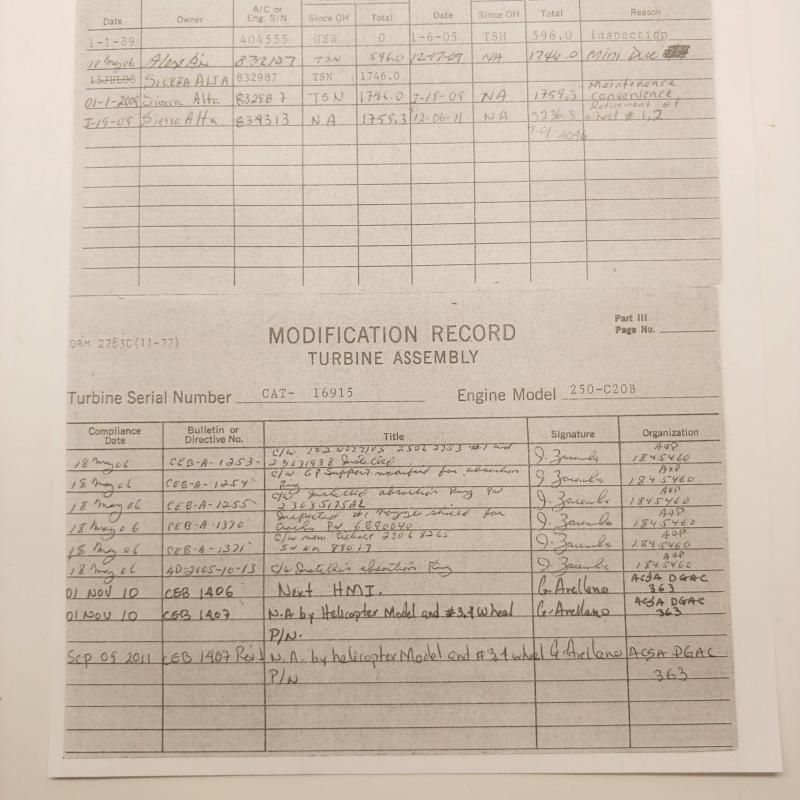 Since OH Total Since OH Total
Date Owner A/C or Eng. S/N Date Reason
1-1-89 404555 NEW 0 1-6-05 TSN 596.0 inspection
18 May 06 832107 TSN 596.0 12-17-07 NA 1746.0 Mini Due
SIERRA ALTA 832987 TSN 1746.0
Maintenance
01-1-2008 Sierra Alta 832987 TSN 1746.0 I-19-09 NA 1759.3 convenience
Retirement of
I-19-09 Sierra Alta 834313 NA 1759.3 12-06-11 NA 3236.3 wheel # 1,2
MODIFICATION RECORD
TURBINE ASSEMBLY
Part III
Page No.
ORM 2783C(11-77)
Turbine Serial Number CAT- 16915 Engine Model 250-C20B
Compliance Date Bulletin or Directive No. Title Signature Organization
18 May 06 CEB-A-1253 Installed J. Zaremba 1845460
c/w GP Support modified for absorption
18 May 06 CEB-A-1254 Ring J. Zaremba 1845460
c/w Installed absorption Ring PN
18 May 06 CEB-A-1255 23035175AL J. Zaremba 1845460
Inspected #1 nozzle shield for
18 May 06 CEB-A-1370 Cracks PN 6890040 J. Zaremba 1845460
c/w new
18 May 06 CEB-A-1371 J. Zaremba 1845460
18 May 06 AD-2005-10-13 c/w absorption Ring J. Zaremba 1845460
01 NOV 10 CEB 1406 Next HMI. G. Arellano ACSA DGAC 363
01 NOV 10 CEB 1407 N.A by Helicopter Model and #3,4 Wheel G. Arellano ACSA DGAC 363
P/N.
Sep 09 2011 CEB 1407 Rev.1 N.A. by helicopter Model and #3,4 wheel G Arellano ACSA DGAC
P/N 363